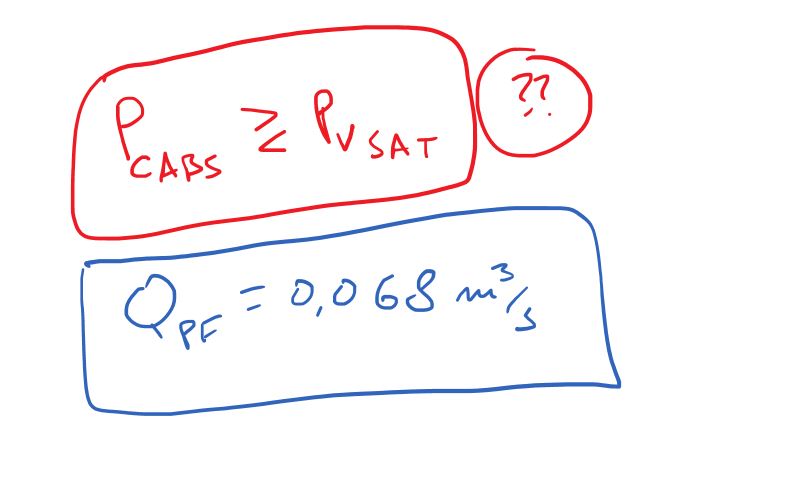 P_CABS ≥ P_VSAT ??
Q_PF = 0,068 m³/s